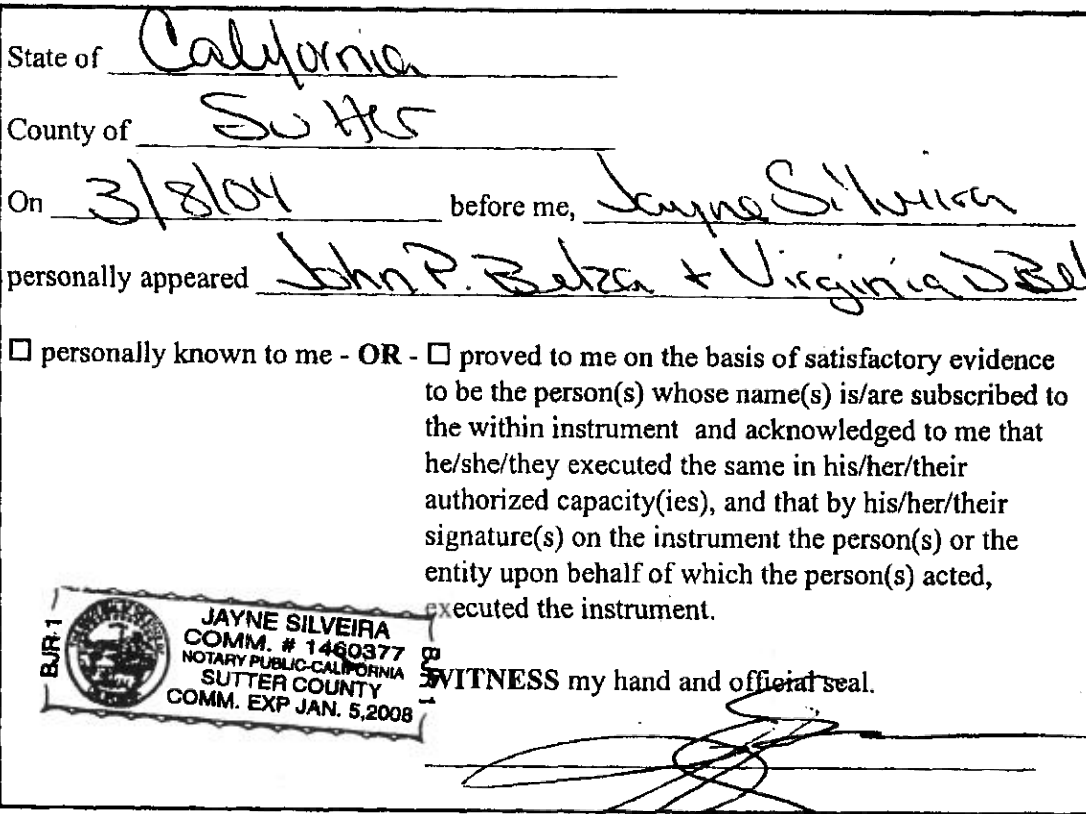 State of California
County of Sutter
On 3/8/04 before me, Jayne Silveira
personally appeared John P. Belza + Virginia D Bel
☐ personally known to me - OR - ☐ proved to me on the basis of satisfactory evidence
to be the person(s) whose name(s) is/are subscribed to
the within instrument and acknowledged to me that
he/she/they executed the same in his/her/their
authorized capacity(ies), and that by his/her/their
signature(s) on the instrument the person(s) or the
entity upon behalf of which the person(s) acted,
executed the instrument.
BJR-1
JAYNE SILVEIRA
COMM. # 1460377
NOTARY PUBLIC-CALIFORNIA
SUTTER COUNTY
COMM. EXP JAN. 5,2008
WITNESS my hand and official seal.